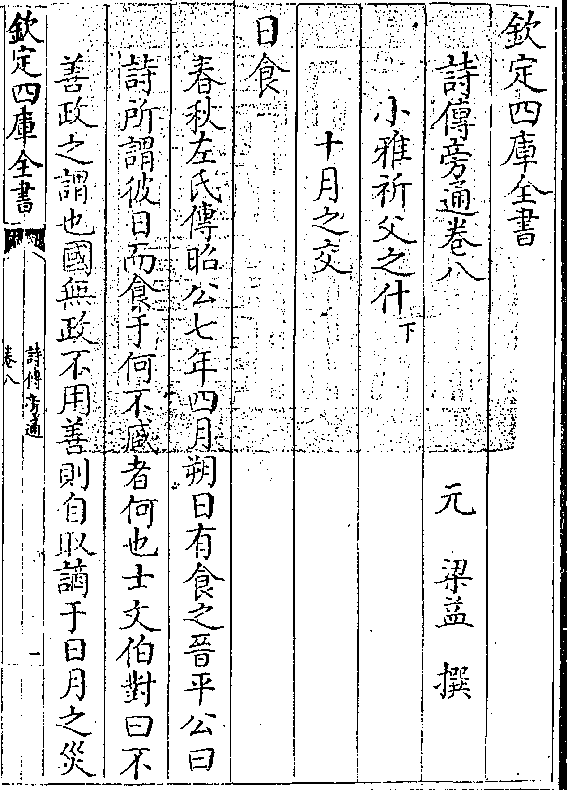 欽定四庫全書
詩傳旁通卷八
元 梁益 撰
小雅祈父之什下
十月之交
日食
春秋左氏傳昭公七年四月朔日有食之晉平公曰
詩所謂彼日而食于何不臧者何也士文伯對曰不
善政之謂也國無政不用善則自取謫于日月之災
欽定四庫全書
詩傳旁通
卷八
一